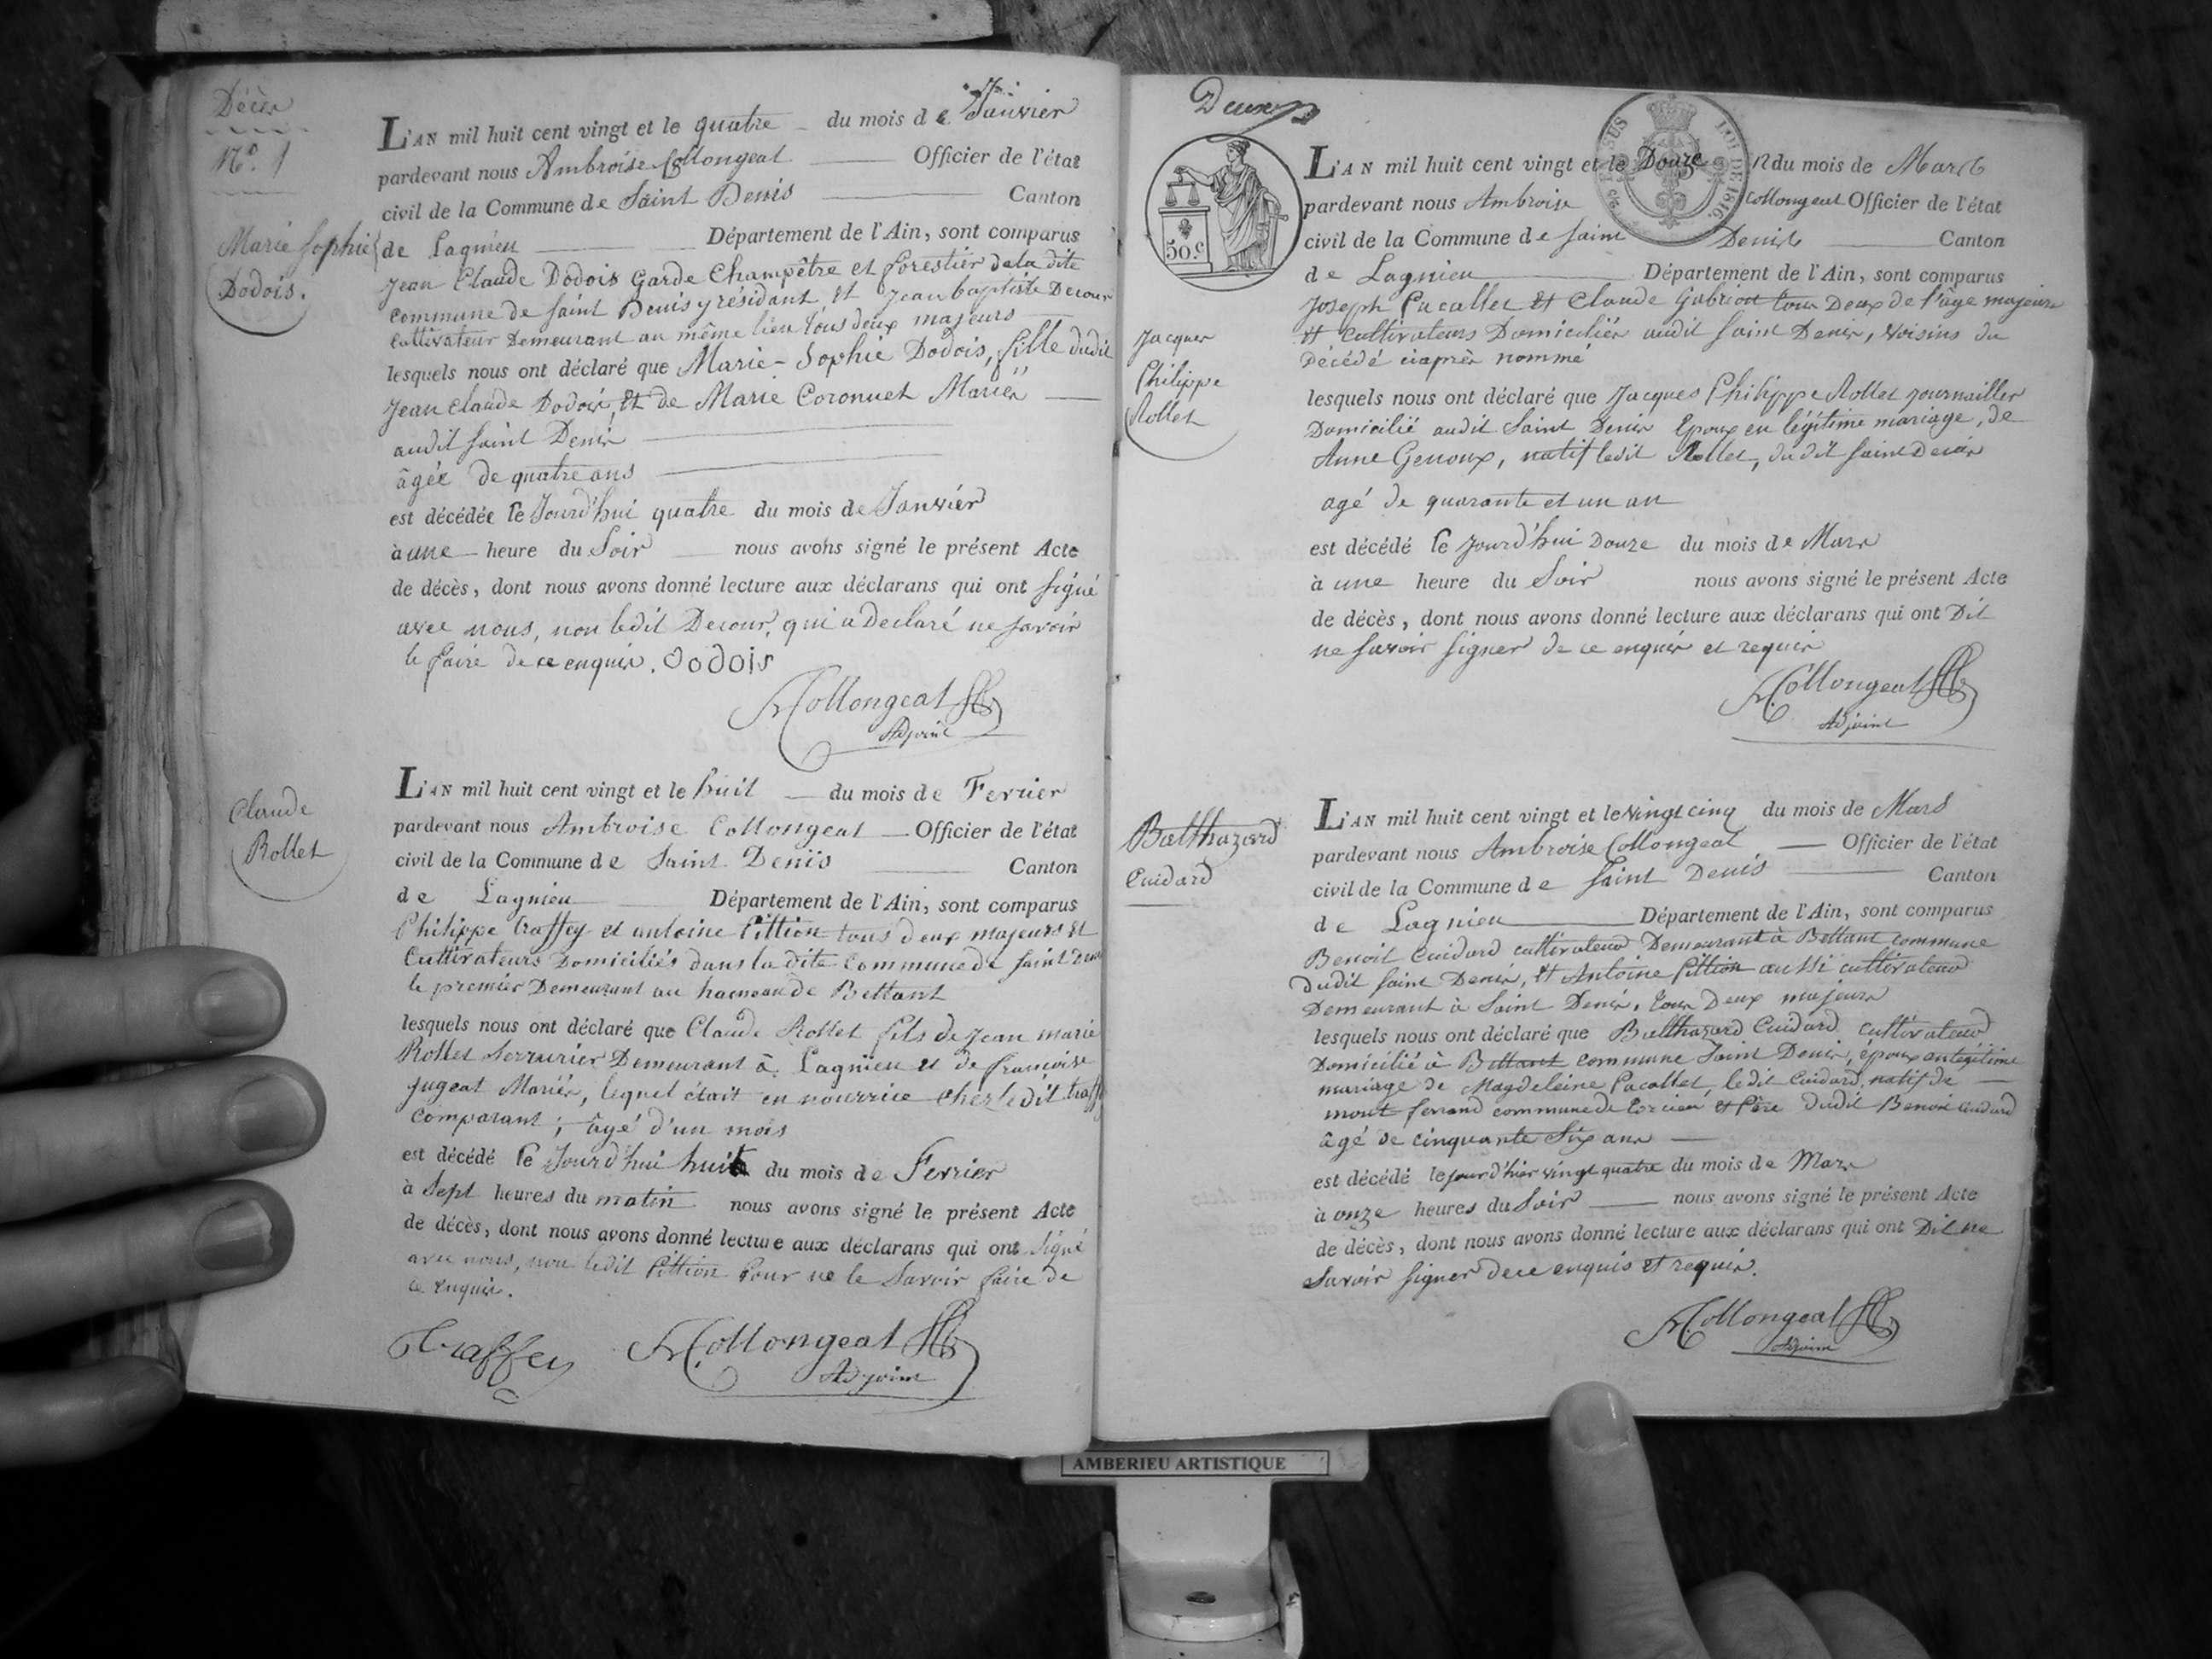 Décès
N.º 1
Marie Sophie
Dodois.
L'AN mil huit cent vingt et le quatre du mois de Janvier
pardevant nous Ambroise Collongeat Officier de l'état
civil de la Commune de Saint Denis Canton
de Lagnieu Département de l'Ain, sont comparus
Jean Claude Dodois Garde Champêtre et forestier dela dite
commune de Saint Denis y résidant et Jean baptiste Decour
cultivateur Demeurant au même lieu tous deux majeurs
lesquels nous ont déclaré que Marie-Sophie Dodois, fille dudit
Jean Claude Dodois, Et de Marie Coronuet Mariés
audit Saint Denis
âgée de quatre ans
est décédée le Jourd'hui quatre du mois de Janvier
à une heure du Soir nous avons signé le présent Acte
de décès, dont nous avons donné lecture aux déclarans qui ont signé
avec nous, non ledit Decour, qui a declaré ne savoir
le faire de ce enquis. Dodois
Collongeat
Adjoint
Claude
Rollet
L'AN mil huit cent vingt et le huit du mois de Fevrier
pardevant nous Ambroise Collongeat Officier de l'état
civil de la Commune de Saint Denis Canton
de Lagnieu Département de l'Ain, sont comparus
Philippe Traffey et antoine Pittion tous deux majeurs Et
Cultivateurs Domiciliés dans la dite Commune de Saint Denis
le premier Demeurant au hameau de Bettant
lesquels nous ont déclaré que Claude Rollet fils de Jean marie
Rollet Serrurier Demeurant à Lagnieu et de francoise
Jugeat Mariés, lequel était en nourrice chez ledit traffey
Comparant; âgé d'un mois
est décédé le Jourd'hui huit du mois de Fevrier
à Sept heures du matin nous avons signé le présent Acte
de décès, dont nous avons donné lecture aux déclarans qui ont signé
avec nous, non ledit Pittion pour ne le Savoir faire de
ce enquis.
Traffey Collongeat
Adjoint
Deux
50.c
LOI DE 1816.
Jacques
Philippe
Rollet
L'AN mil huit cent vingt et le Douze 12 du mois de Mars
pardevant nous Ambroise Collongeat Officier de l'état
civil de la Commune de Saint Denis Canton
de Lagnieu Département de l'Ain, sont comparus
Joseph Pacallet Et Claude Gabriot tous Deux de l'âge majeurs
Et Cultivateurs Domiciliés audit Saint Denis, Voisins du
Décédé ciaprès nommé
lesquels nous ont déclaré que Jacques Philippe Rollet journaillier
Domicilié audit Saint Denis Epoux en légitime mariage, de
Anne Genoux, natif ledit Rollet, dudit Saint Denis
agé de quarante et un an
est décédé le Jourd'hui Douze du mois de Mars
à une heure du Soir nous avons signé le présent Acte
de décès, dont nous avons donné lecture aux déclarans qui ont Dit
ne savoir signer de ce enquis et requis
Collongeat
Adjoint
Balthazard
Cuidard
L'AN mil huit cent vingt et le Vingt cinq du mois de Mars
pardevant nous Ambroise Collongeat Officier de l'état
civil de la Commune de Saint Denis Canton
de Lagnieu Département de l'Ain, sont comparus
Benoit Cuidard cultivateur Demeurant à Bettant commune
dudit Saint Denis, Et Antoine Pittion aussi cultivateur
Demeurant à Saint Denis, tous Deux majeurs
lesquels nous ont déclaré que Balthazard Cuidard cultivateur
Domicilié à Bettant commune Saint Denis, époux en légitime
mariage de Magdeleine Pacallet, ledit Cuidard, natif de
mont ferrand commune de Torcieu et Père dudit Benoit Cuidard
âgé de cinquante Six ans
est décédé le jour d'hier vingt quatre du mois de Mars
à onze heures du Soir nous avons signé le présent Acte
de décès, dont nous avons donné lecture aux déclarans qui ont Dit ne
Savoir signer de ce enquis et requis.
Collongeat
Adjoint
AMBERIEU ARTISTIQUE